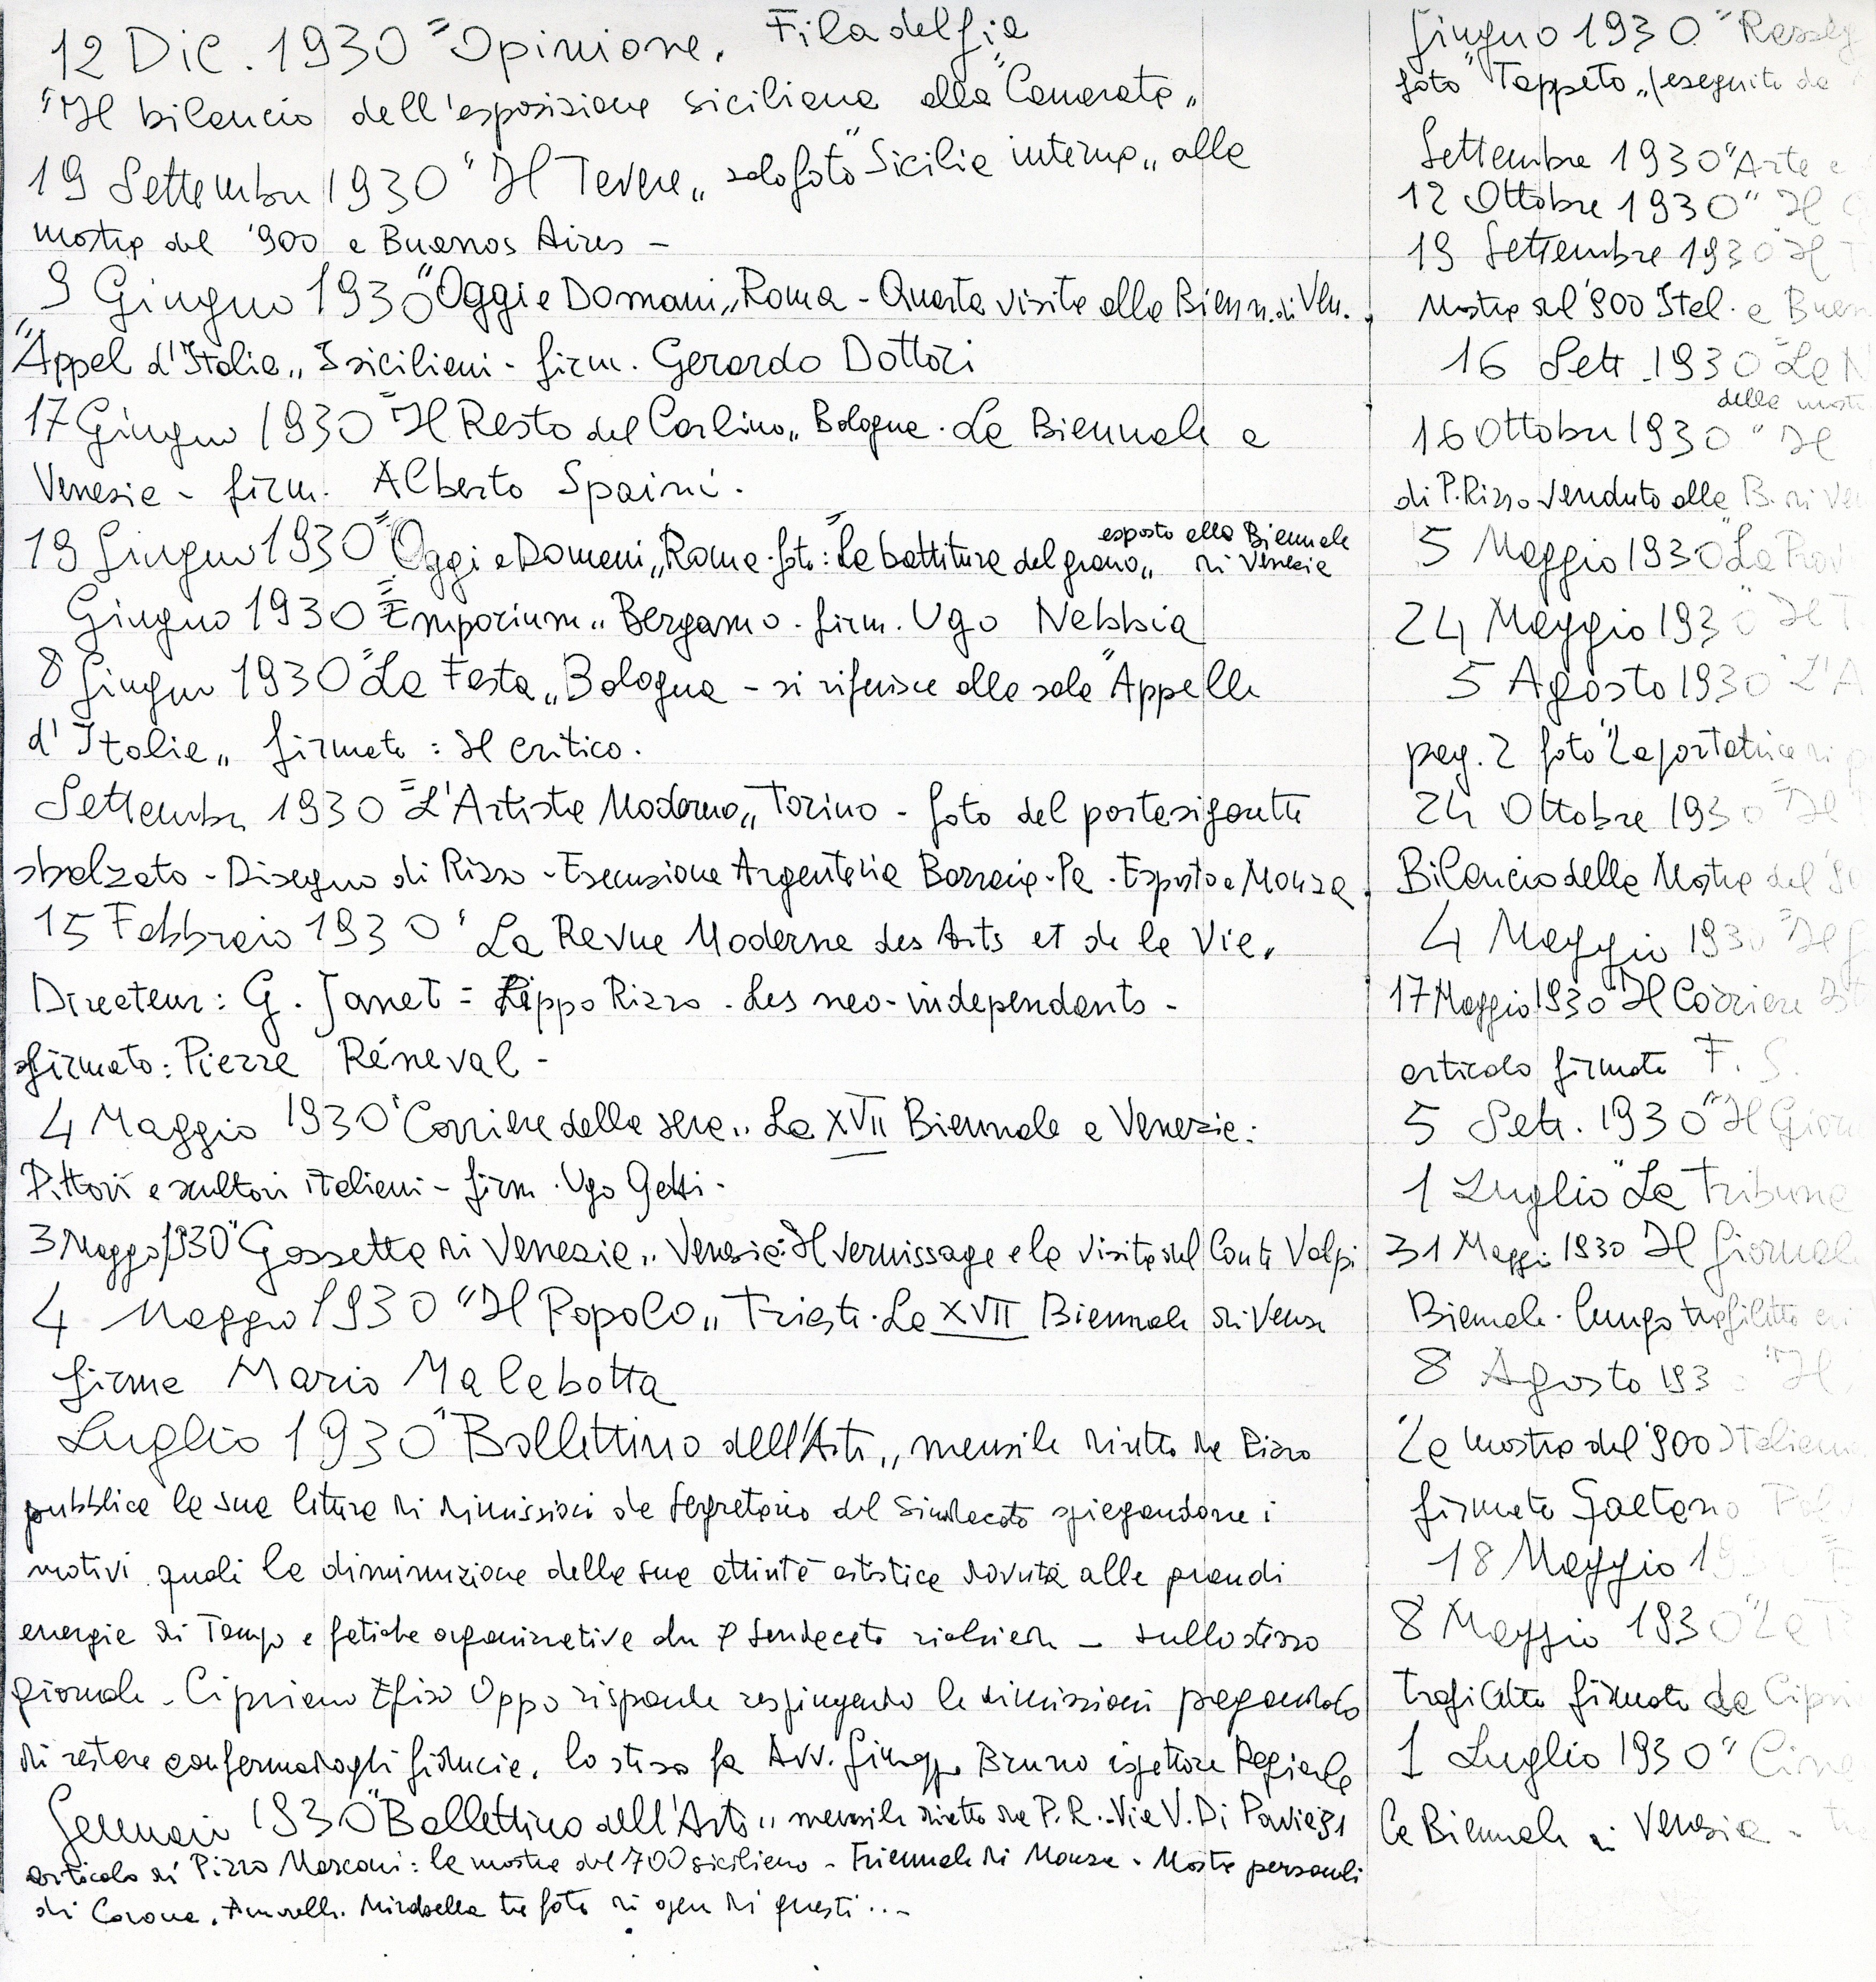 12 Dic. 1930 "Opinione„ Filadelfia
"Il bilancio dell'esposizione siciliana alla "Camerata„
19 Settembre 1930 "Il Tevere„ solo foto "Sicilia interna„ alla
mostra del '900 a Buenos Aires -
9 Giugno 1930 "Oggi e Domani„ Roma - Quarta visita alla Bienn. di Ven.
"Appel d'Italia„ I siciliani - firm. Gerardo Dottori
17 Giugno 1930 "Il Resto del Carlino„ Bologna. La Biennale a
Venezia - firm. Alberto Spaini.
19 Giugno 1930 "Oggi e Domani„ Roma. foto: "La battitura del grano„ esposto alla Biennale di Venezia
Giugno 1930 "Emporium„ Bergamo. firm. Ugo Nebbia
8 Giugno 1930 "La Festa„ Bologna - si riferisce alla sala "Appelle
d'Italia„ firmato: Il critico.
Settembre 1930 "L'Artista Moderno„ Torino - foto del portasigarette
sbalzato - Disegno di Rizzo - Esecuzione Argenteria Barraja - Pa. Esposto a Monza
15 Febbraio 1930 "La Revue Moderne des Arts et de la Vie„
Directeur: G. Janet = Pippo Rizzo. Les neo-independants -
firmato: Pierre Réneval -
4 Maggio 1930 "Corriere della sera„ La XVII Biennale a Venezia:
Pittori e scultori italiani - firm. Ugo Ojetti.
3 Maggio 1930 "Gazzetta di Venezia„ Venezia: Il vernissage e la visita del Conte Volpi
4 Maggio 1930 "Il Popolo„ Trieste. La XVII Biennale di Venez
firma Mario Malabotta
Luglio 1930 "Bollettino dell'Arte„ mensile diretto da Rizzo
pubblica la sua lettera di dimissioni da Segretario del Sindacato spiegandone i
motivi quali la diminuzione della sua attività artistica dovuta alle grandi
energie di Tempo e fatiche organizzative che il Sindacato richiede - sullo stesso
giornale - Cipriano Efisio Oppo risponde respingendo le dimissioni pregandolo
di restare confermandogli fiducia, lo stesso fa Avv. Giuseppe Bruno ispettore Regionale
Gennaio 1930 "Bollettino dell'Arte„ mensile diretto da P.R. - Via V. Di Pavia 31
articolo di Pirro Marconi: la mostra del '700 siciliano - Triennale di Monza - Mostre personali
di Corona, Amorelli, Mirabella tre foto di opere di questi...-
Giugno 1930 "Rasseg
foto "Tappeto„ (eseguito da
Settembre 1930 "Arte e
12 Ottobre 1930 "Il
19 Settembre 1930 "Il T
Mostra del '900 Ital. a Buen
16 Sett. 1930 "La N
della most
16 Ottobre 1930 "Il
di P. Rizzo venduto alla B. di Ve
5 Maggio 1930 "La Prov
24 Maggio 1930 "Il T
5 Agosto 1930 "L'A
pag. 2 foto "La portatrice di
24 Ottobre 1930 "Il
Bilancio della Mostra del '90
4 Maggio 1930 "Il G
17 Maggio 1930 "Il Corriere Ist
articolo firmato F. S.
5 Sett. 1930 "Il Gior
1 Luglio "La Tribuna
31 Maggio 1930 Il Giornale
Biennale. lungo trafiletto
8 Agosto 193 "Il
"La mostra del '900 Italiano
firmato Gaetano
18 Maggio 19
8 Maggio 1930 "La T
trafiletto firmato da Cipri
1 Luglio 1930 "Cine
La Biennale di Venezia -